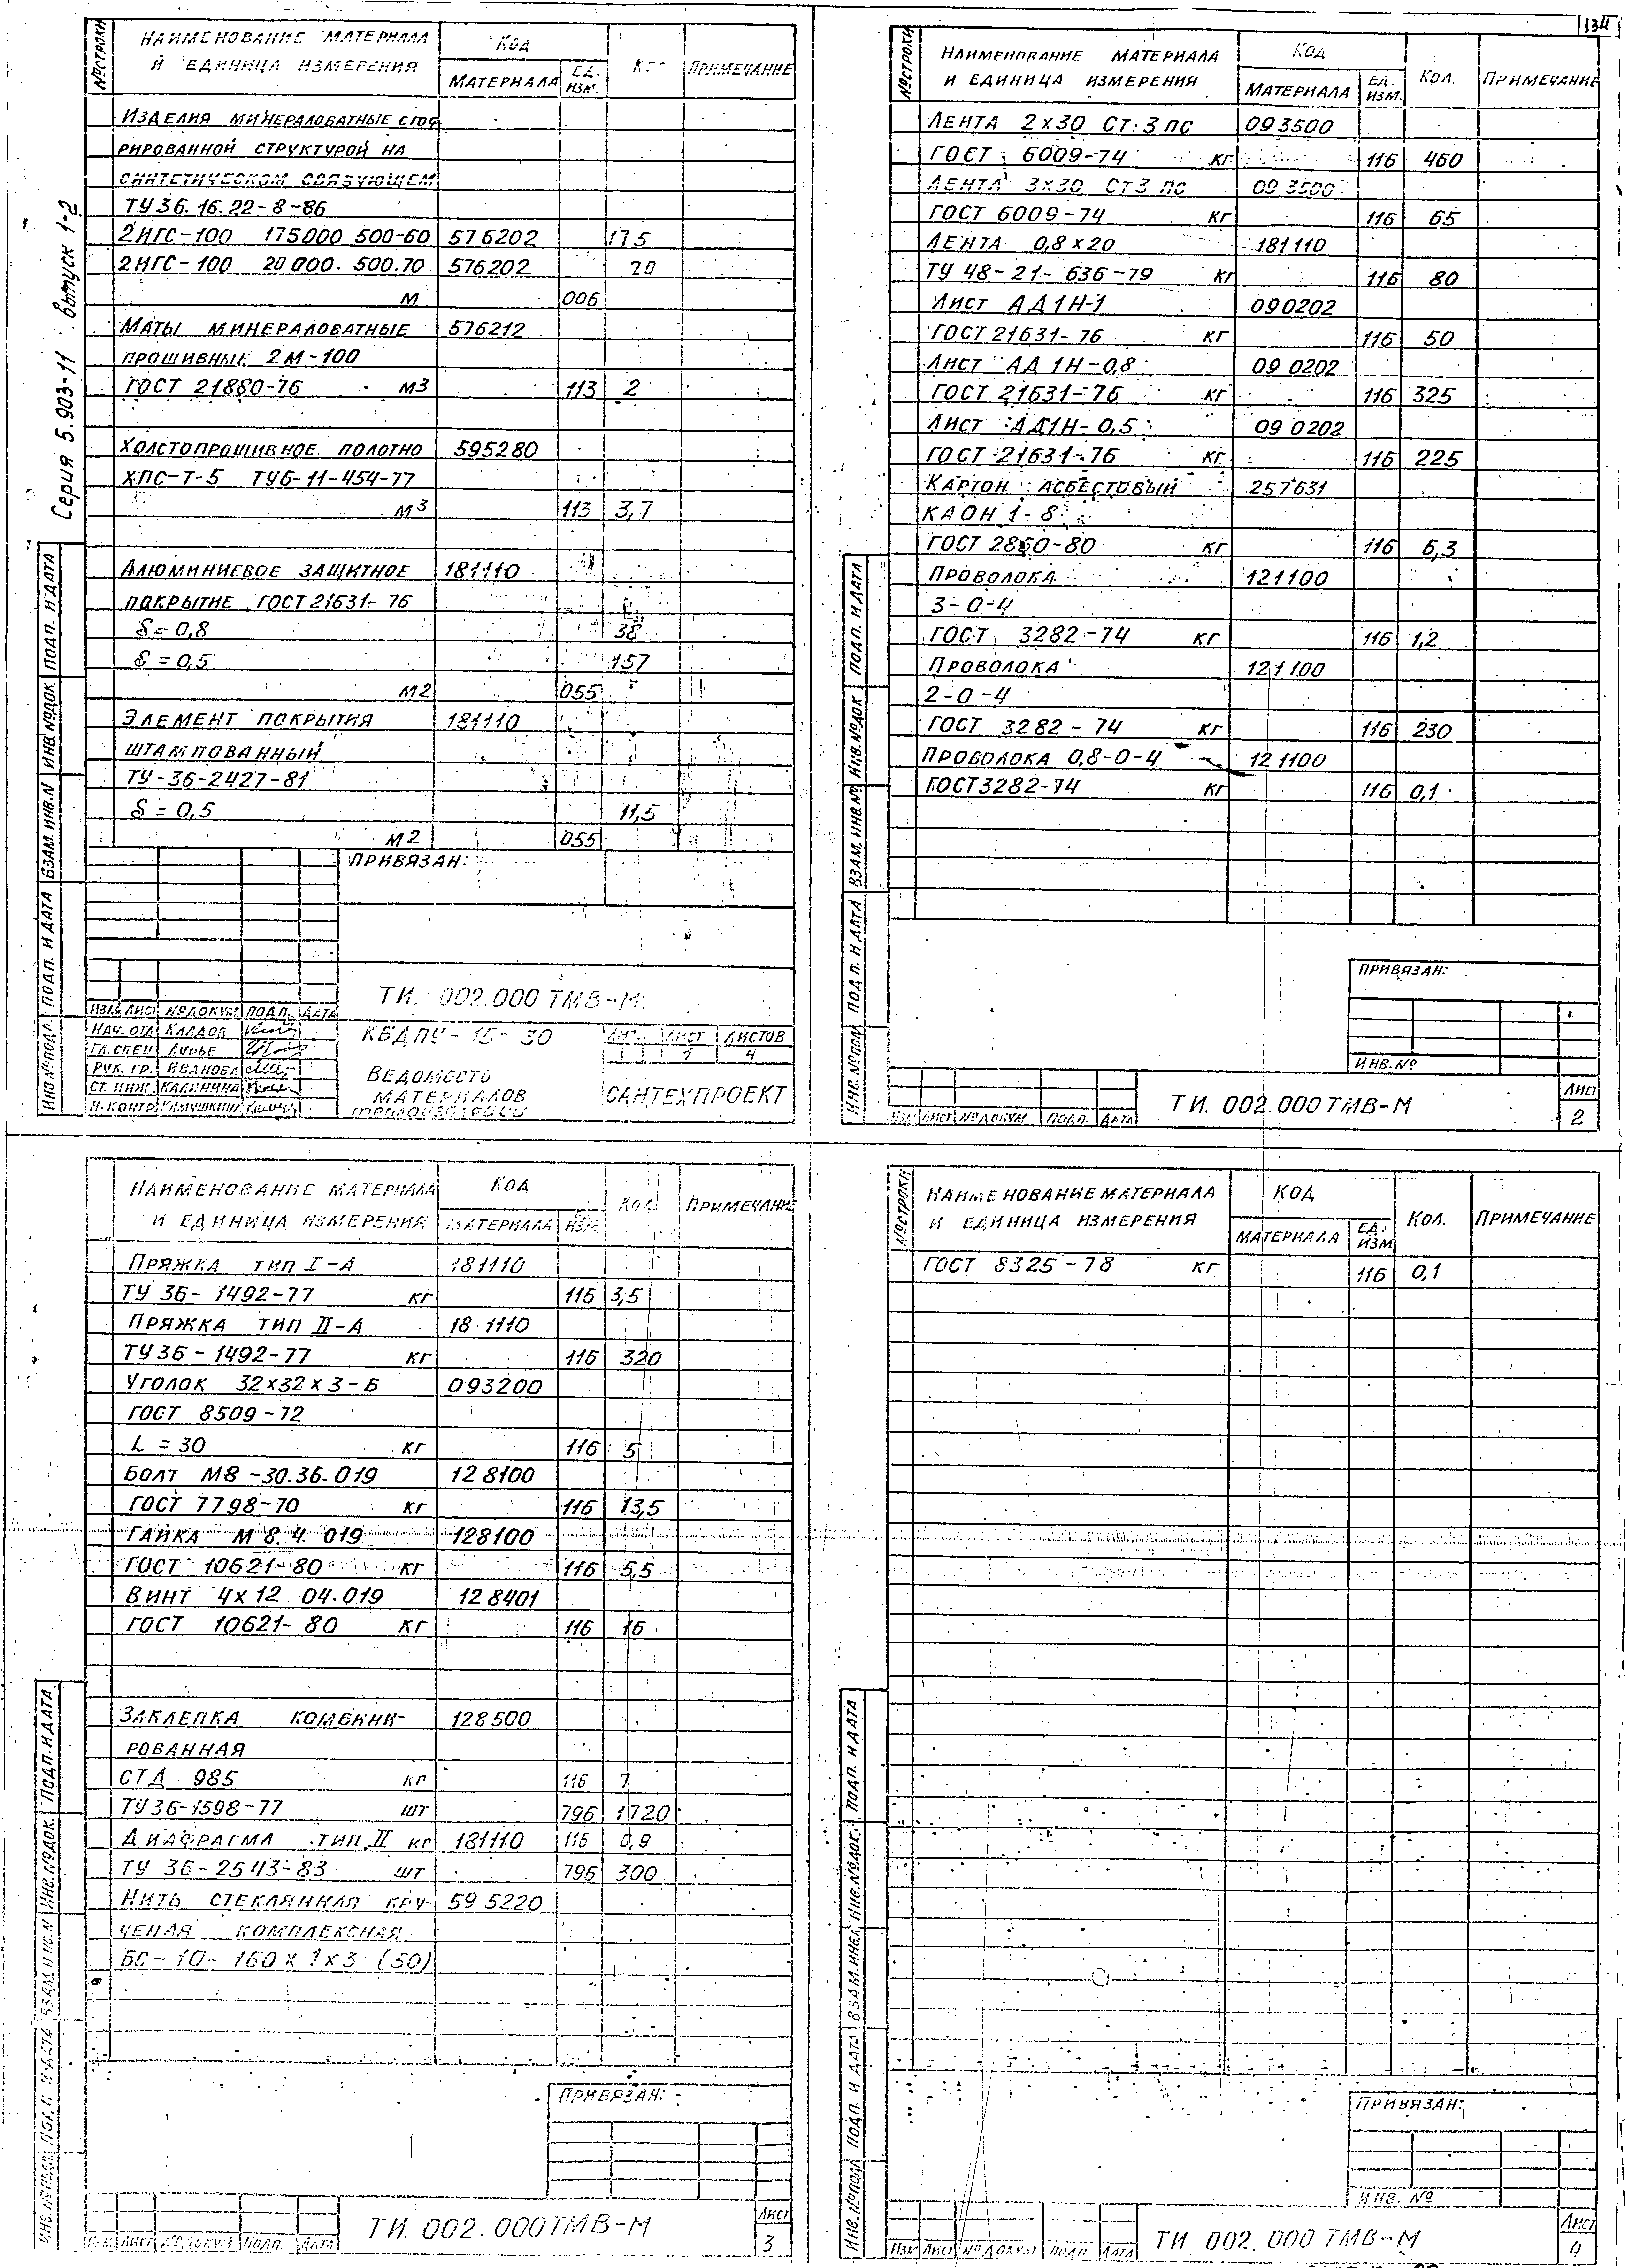 134
Серия 5.903-11 выпуск 1-2
№ строки
Наименование материала
и единица измерения
Код
материала
Ед. изм.
Примечание
Изделия минераловатные гоф
рированной структурой на
синтетическом связующем
ТУ 36.16.22-8-86
2ИГС-100 175000 500-60 576202 175
2ИГС-100 20000.500.70 576202 20
м 006
Маты минераловатные 576212
прошивные 2М-100
ГОСТ 21880-76 м3 113 2
Холстопрошивное полотно 595280
ХПС-Т-5 ТУ6-11-454-77
м3 113 3,7
Алюминиевое защитное 181110
покрытие ГОСТ 21631-76
δ=0,8 38
δ=0,5 157
м2 055
Элемент покрытия 181110
штампованный
ТУ-36-2427-81
δ=0,5 11,5
м2 055
Привязан:
ТИ. 002.000 ТМВ-М
Изм Лист № докум Подп. Дата
Нач. отд
Гл. спец Лурье
Рук. гр. Иванова
Ст. инж. Калинина
Н. контр
КБДПУ-15-30
Лит. Лист Листов
1 4
Ведомость
материалов
теплоизоляции
САНТЕХПРОЕКТ
Инв № подл. Подп. и дата Взам. инв. N Инв № док Подп. и дата
№ строки
Наименование материала
и единица измерения
Код
материала
Ед. изм.
Кол.
Примечание
Лента 2х30 Ст.3 пс 093500
ГОСТ 6009-74 кг 116 460
Лента 3х30 Ст3 пс 093500
ГОСТ 6009-74 кг 116 65
Лента 0,8х20 181110
ТУ 48-21-636-79 кг 116 80
Лист АД1Н-1 090202
ГОСТ 21631-76 кг 116 50
Лист АД1Н-0,8 090202
ГОСТ 21631-76 кг 116 325
Лист АД1Н-0,5 090202
ГОСТ 21631-76 кг 116 225
Картон асбестовый 257631
КАОН 1-8
ГОСТ 2850-80 кг 116 6,3
Проволока 121100
3-0-4
ГОСТ 3282-74 кг 116 1,2
Проволока 121100
2-0-4
ГОСТ 3282-74 кг 116 230
Проволока 0,8-0-4 121100
ГОСТ 3282-74 кг 116 0,1
Привязан:
Инв. №
Изм Лист № докум Подп. Дата
ТИ. 002.000 ТМВ-М
Лист
2
Инв. № подл Подп. и дата Взам. инв № Инв. № док Подп. и дата
Наименование материала
и единица измерения
Код
материала
изм.
Кол.
Примечание
Пряжка тип I-А 181110
ТУ 36-1492-77 кг 116 3,5
Пряжка тип II-А 181110
ТУ 36-1492-77 кг 116 320
Уголок 32х32х3-Б 093200
ГОСТ 8509-72
L=30 кг 116 5
Болт М8-30.36.019 128100
ГОСТ 7798-70 кг 116 13,5
Гайка М8.4.019 128100
ГОСТ 10621-80 кг 116 5,5
Винт 4х12 04.019 128401
ГОСТ 10621-80 кг 116 16
Заклепка комбини- 128500
рованная
СТД 985 кг 116 7
ТУ 36-1598-77 шт 796 1720
Диафрагма тип II кг 181110 116 0,9
ТУ 36-2543-83 шт 796 300
Нить стеклянная кру- 595220
ченая комплексная
БС-10-160х1х3 (50)
Привязан:
Изм Лист № докум Подп. Дата
ТИ. 002.000 ТМВ-М
Лист
3
Инв. № подл. Подп. и дата Взам. инв. N Инв. № док. Подп. и дата
№ строки
Наименование материала
и единица измерения
Код
материала
Ед. изм
Кол.
Примечание
ГОСТ 8325-78 кг 116 0,1
Привязан:
Инв. №
Изм Лист № докум Подп Дата
ТИ. 002.000 ТМВ-М
Лист
4
Инв. № подл Подп. и дата Взам. инв Инв. № док. Подп. и дата